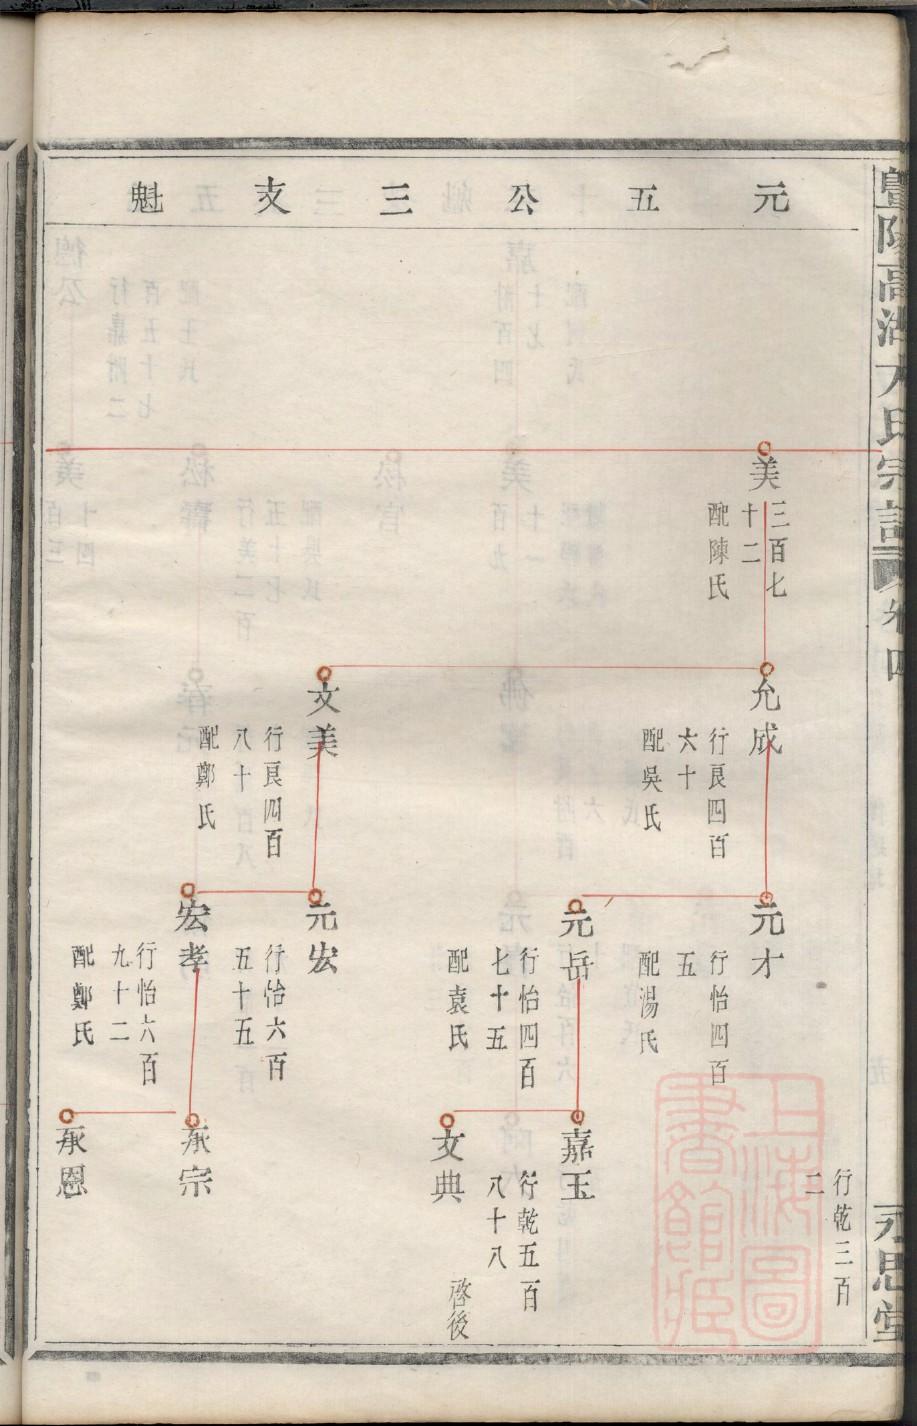 元五公三支魁
暨陽高湖方氏宗譜
卷四
永思堂
行乾三百
二
美
三百七
十二
配陳氏
允成
行良四百
六十
配吳氏
元才
行怡四百
五
配湯氏
元岳
行怡四百
七十五
配袁氏
嘉玉
行乾五百
八十八
文典
啓後
文美
行良四百
八十
配鄭氏
元宏
行怡六百
五十五
宏孝
行怡六百
九十二
配鄭氏
承宗
承恩
上海圖
書館藏